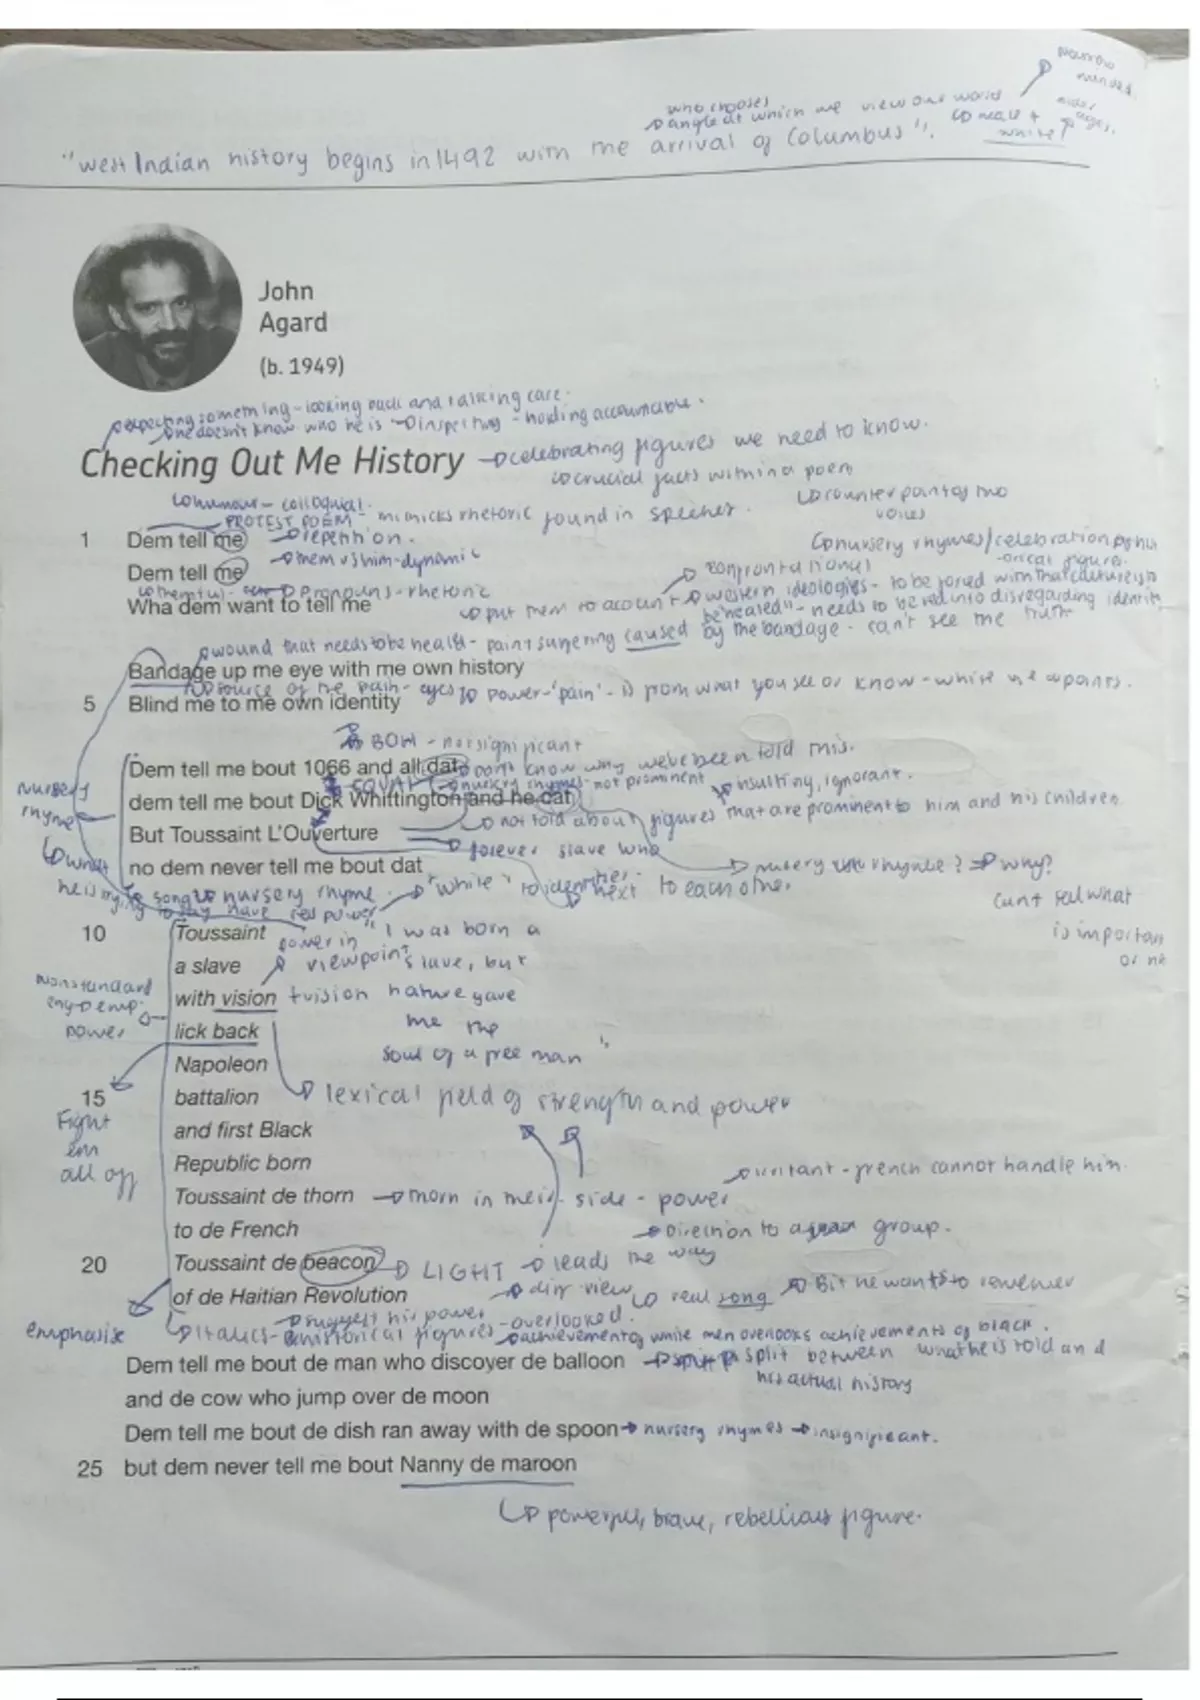 narrow
minded.
who chooses
angle at which we view our world
male +
white
ages.
"west Indian history begins in 1492 with the arrival of Columbus".
John
Agard
(b. 1949)
expecting something - looking back and taking care.
one doesn't know who he is inspecting - holding accountable.
Checking Out Me History
celebrating figures we need to know.
crucial facts within a poem
humour - colloquial.
counterpart of two
voices
PROTEST POEM - mimicks rhetoric found in speeches.
1 Dem tell me
repetition.
nursery rhymes/celebration of his
great figures.
Dem tell me
them vs him - dynamic
confrontational
pronouns - rhetoric
western ideologies - to be forced with that culture is to
Wha dem want to tell me
put them to account
be "healed" - needs to be red into disregarding identity
wound that needs to be healed - pain + suffering caused by the bandage - can't see the truth
Bandage up me eye with me own history
source of the pain - eyes power - 'pain' - is from what you see or know - white viewpoints.
5 Blind me to me own identity
BOW - not significant
Dem tell me bout 1066 and all dat
don't know why we've been told this.
nursery rhymes - not prominent
insulting, ignorant.
nursery
rhyme
dem tell me bout Dick Whittington and he cat
not told about figures that are prominent to him and his children
But Toussaint L'Ouverture
forever slave who
no dem never tell me bout dat
nursery rhyme? why?
what
he is trying
to say
song nursery rhyme
have red power
"white" to identities
next to each other
can't tell what
is important
or not
10 Toussaint
power in
viewpoint
"I was born a
a slave
slave, but
nonstandard
eng emp.
power
with vision
+ vision
nature gave
me the
lick back
soul of a free man"
Napoleon
15 battalion
lexical field of strength and power
Fight
em
all off
and first Black
Republic born
irritant - french cannot handle him.
Toussaint de thorn
thorn in their side - power
to de French
Direction to a group.
20 Toussaint de beacon
LIGHT
leads the way
of de Haitian Revolution
diff view
real song
Bit he wants to remember
emphasise
suggest his power
- overlooked.
Italics - historical figures
achievement of white men overlooks achievements of black.
Dem tell me bout de man who discover de balloon
split between what he is told and
his actual history
and de cow who jump over de moon
Dem tell me bout de dish ran away with de spoon
nursery rhymes insignificant.
25 but dem never tell me bout Nanny de maroon
powerful, brave, rebellious figure.